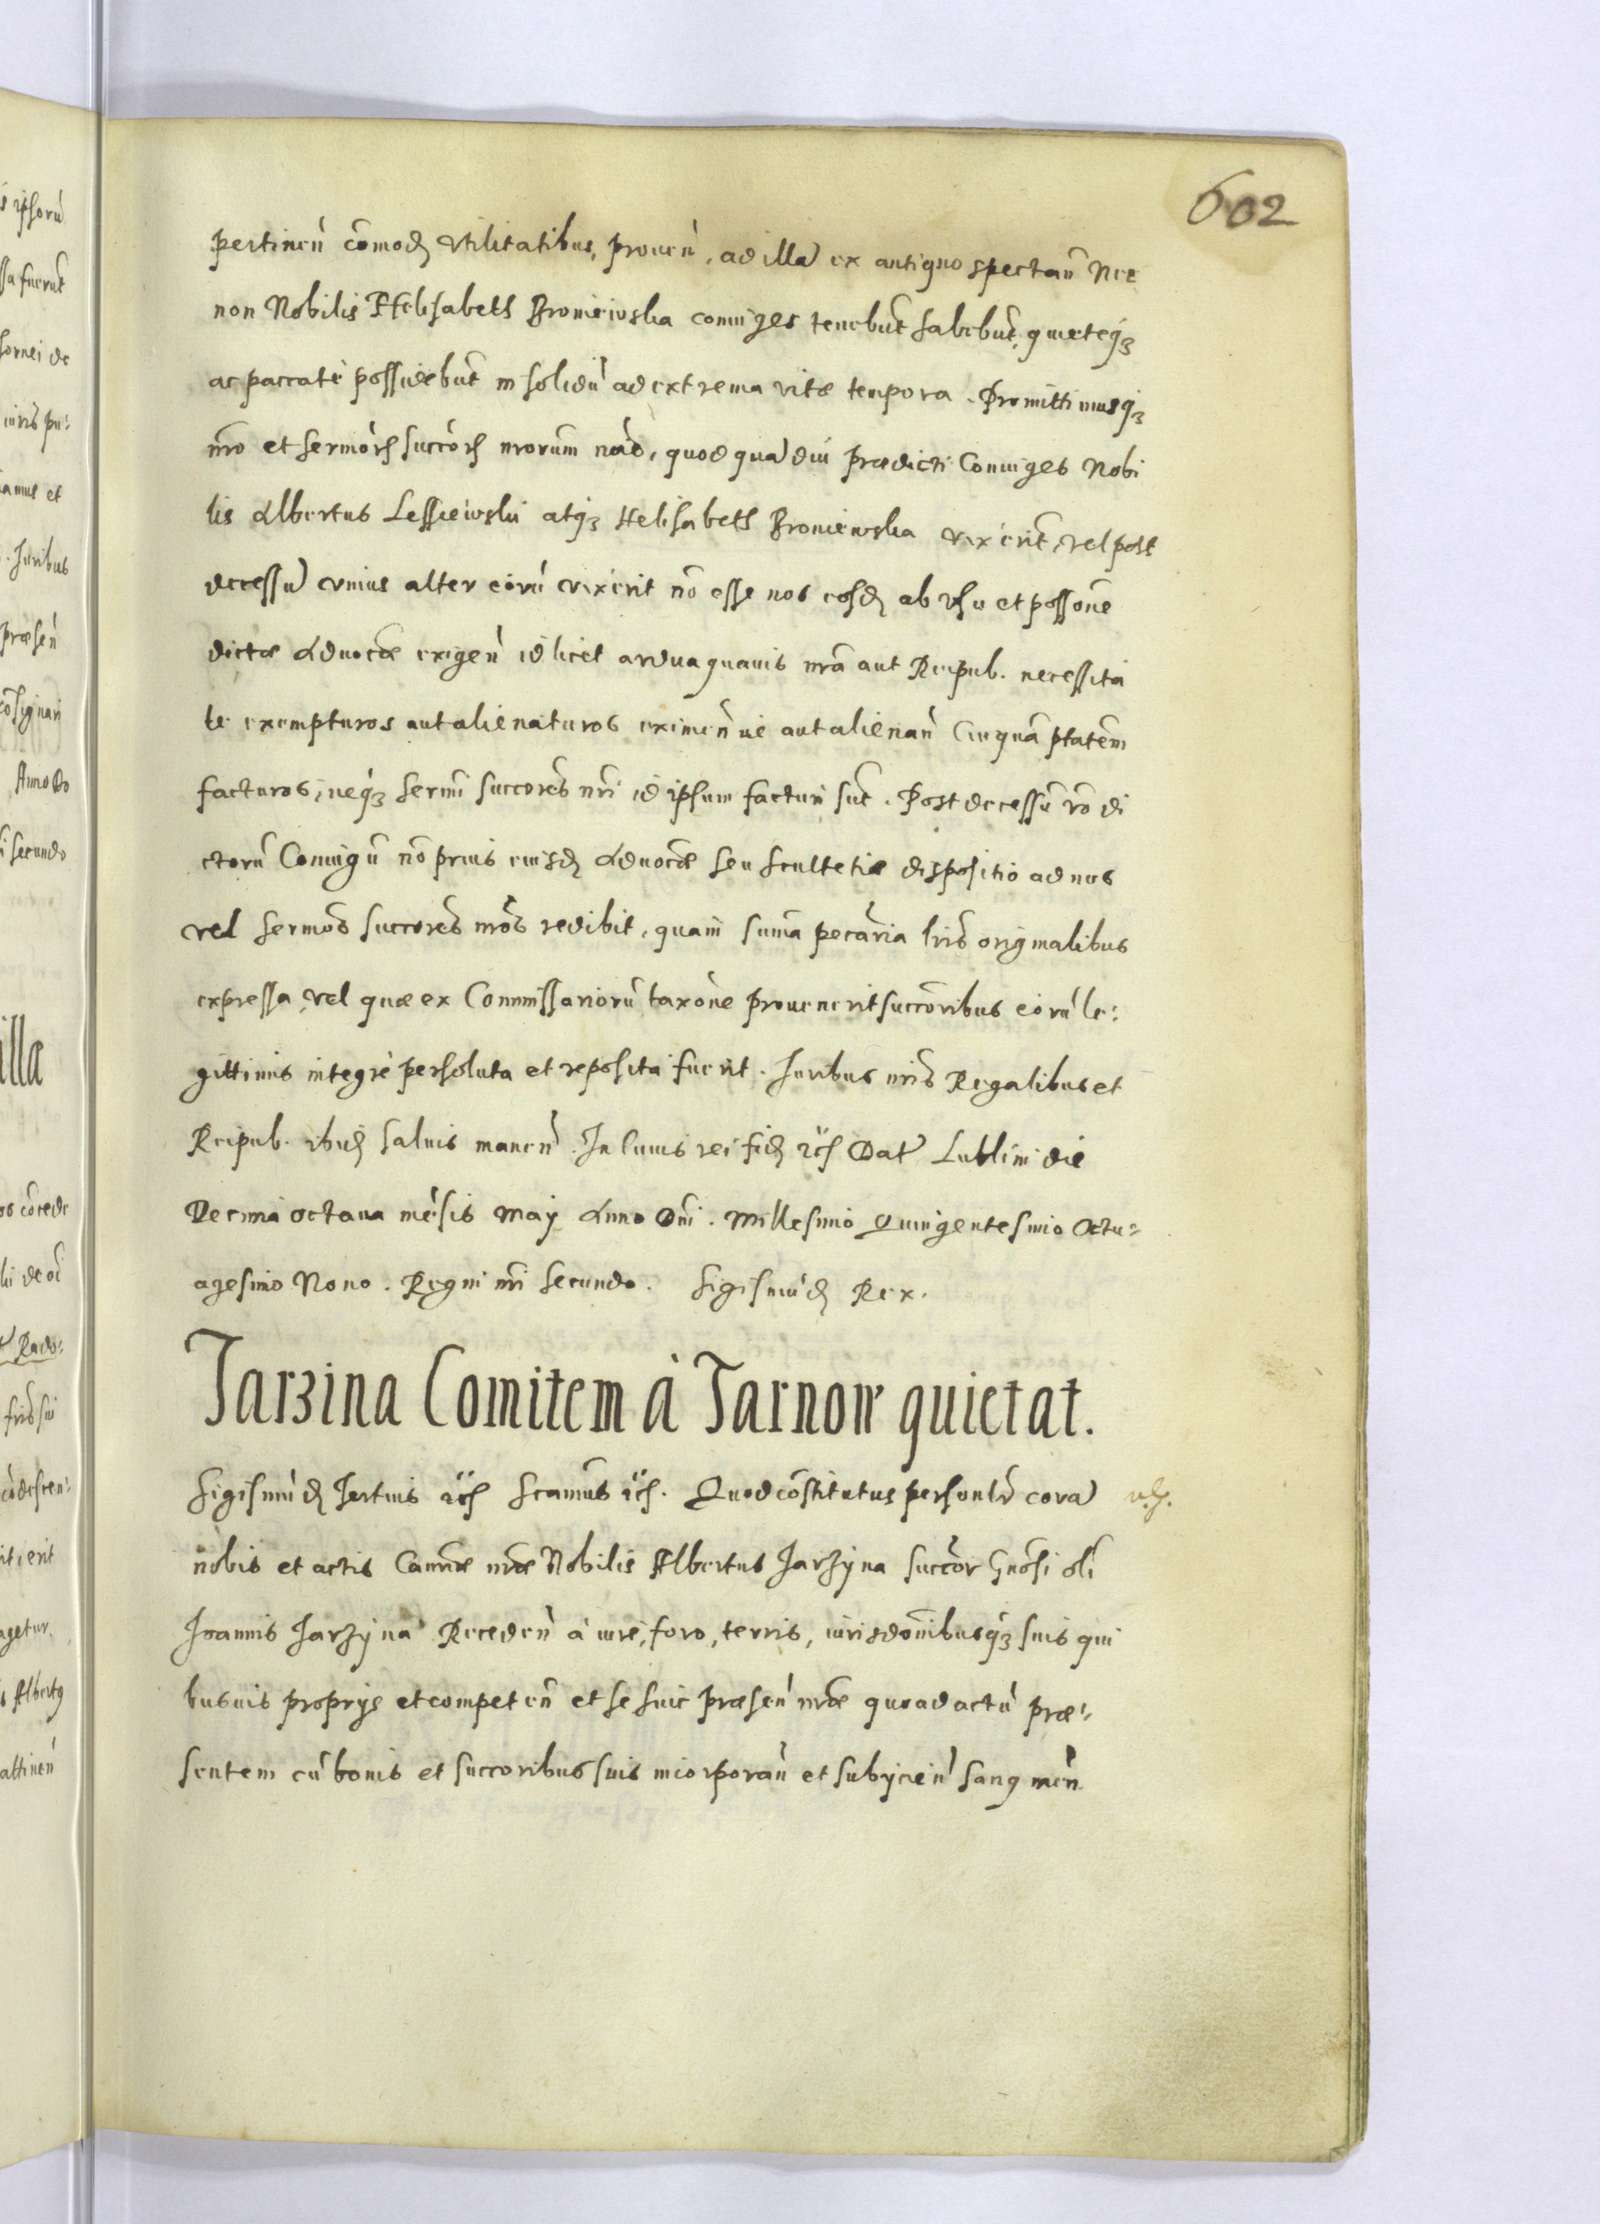 602
pertineñ com̃od; vtilitatibus, proueñ, ad illã ex antiquo spectañ Nec
non Nobilis Helisabeth Broniewska coniuges tenebũt habebũt, quieteq;
ac paccatè possidebũt in solidũ ad extrema vitæ tempora. Promittimusq;
nr̃o et serm̃orũ succ̃orũ nrorum noĩe, quod quãdiu prædicti Coniuges Nobi
lis Albertus Lessiewski atq; Helisabeth Broniewska vixerĩt, vel post
decessũ vnius alter eorũ vixerit nõ esse nos eosd; ab vsu et poss̃one
dictæ Aduoc̃æ exigeñ id licet ardua quauis nr̃a aut Reipub. necessita
te exempturos aut alienaturos eximeñ ue aut alienañ cuiquã p̃tatem
facturos, neq; serm̃i succ̃ores nr̃i id ipsum facturi sũt. Post decessũ ṽo di
ctorũ Coniugũ nõ prius eiusd; Aduoc̃æ seu scultetiæ dispositio ad nos
vel serm̃os succ̃ores nr̃os redibit, quam sum̃a pecũria lr̃is originalibus
expressa, vel quæ ex Commissariorũ taxõne prouenerit succ̃oribus eorũ le:
gittimis integrè persoluta et reposita fuerit. Iuribus nr̃is Regalibus et
Reipub. ibid; saluis maneñ. In cuius rei fid; etc̃ Dat̃ Lublini die
Decima octaua mẽsis May Anno Dñi. Millesimo Quingentesimo Octu:
agesimo Nono. Regni nr̃i secundo. Sigismũd; Rex.
Jarzina Comitem à Tarnow quietat.
Sigismũd; Tertius etc̃ s̃camus etc̃. Quod cõstitutus personlr̃ corã
nobis et actis Canc̃æ nr̃æ Nobilis Albertus Jarzyna succ̃or Gñosi oli
Joannis Jarzyna Recedeñ à iure, foro, terris, iurisdõnibusq; suis qui
busuis proprijs et competeñ et se huic præseñ nr̃æ quo ad actũ præ:
sentem cũ bonis et succ̃oribus suis incorporañ et subijcieñ sanq meñ